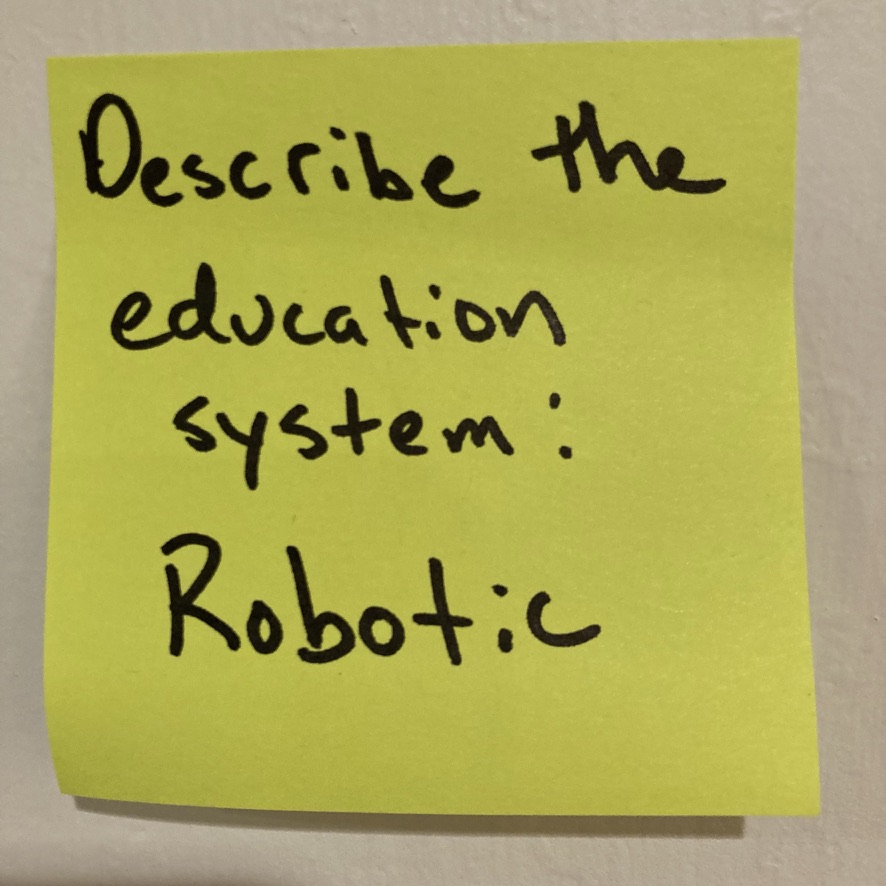 Describe the
education
system:
Robotic